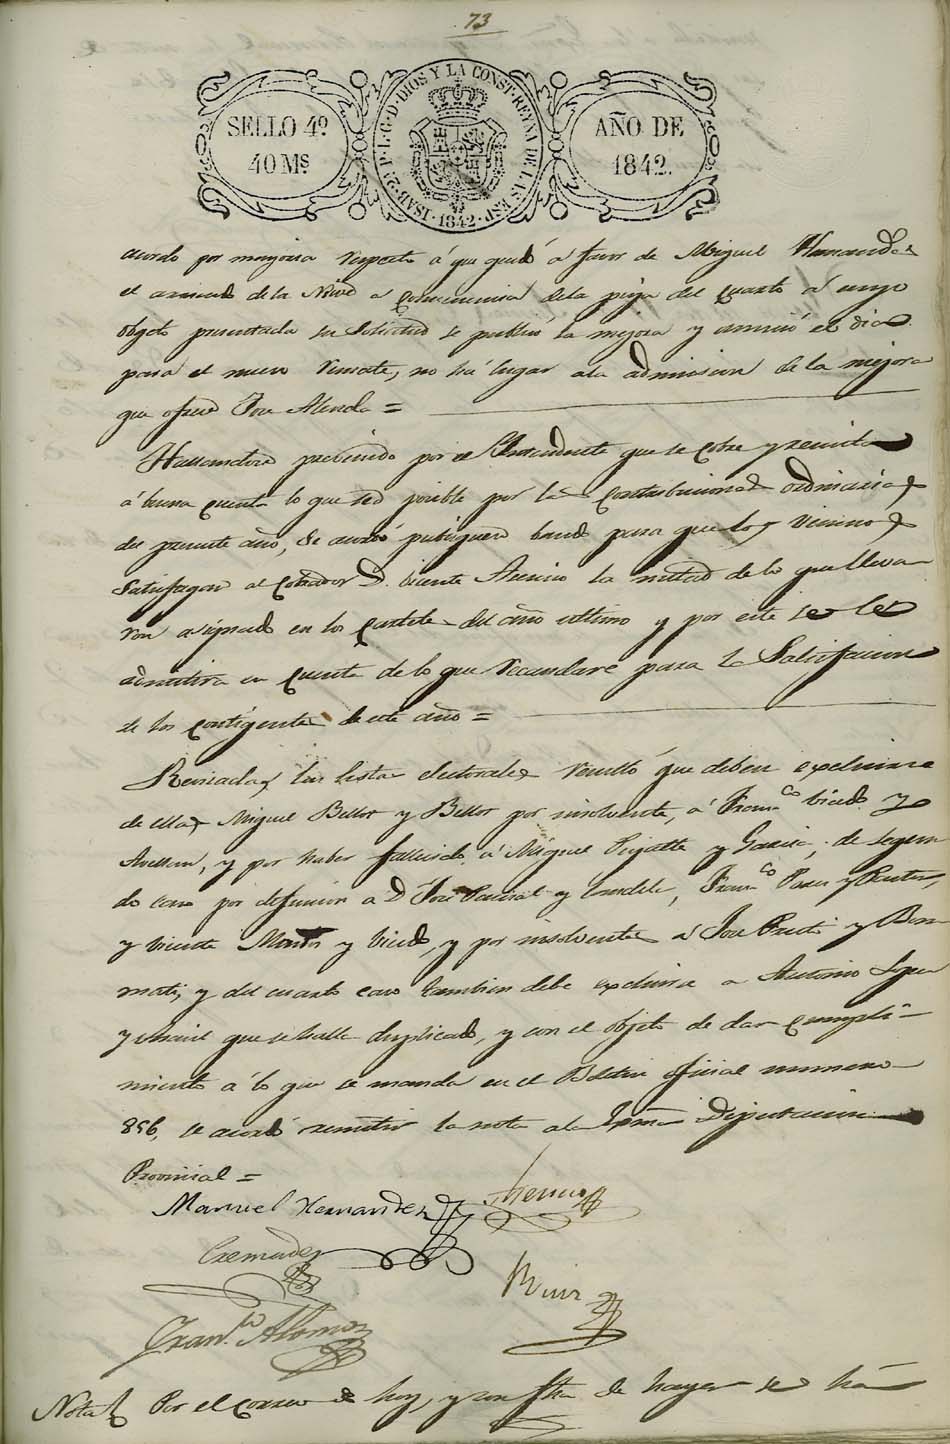 73
SELLO 4º
40 Mˢ
ISAB. 2ª P. L. G. D. DIOS Y LA CONST. REYNA DE LAS ESP. 1842
AÑO DE
1842.
acordó por mayoria respecto á que quedó á favor de Miguel Hernandez
el arriendo de la Nieve á consecuencia de la puja del cuarto á cuyo
objeto presentada su Solicitud se publicó la mejora y anunció el dia
para el nuevo remate, no há lugar á la admision de la mejora
que ofrece Jose Alenda =
Hallandose prevenido por el Intendente que se cobre y remita
á buena cuenta lo que sea posible por las contribuciones ordinarias
del presente año, se acordó publiquen bando para que los vecinos
satisfagan al cobrador D. Vicente Asencio la mitad de lo que lleva-
ron asignado en los cuarteles del año ultimo y por este se les
admitira en cuenta de lo que recaudare para la Satisfacion
de los contigentes de este año =
Revisadas las listas electorales resultó que deben excluirse
de ellas Miguel Bellot y Bellot por insolvente, á Franᶜᵒ Vicedo y
y por haber fallecido á Miguel y Garcia; de segun
do caso por defuncion a D. Jose Pascual y Franᶜᵒ y
y Vicente y Vicedo, y por insolvente á Jose y Bon
mati, y del cuarto caso tambien debe excluirse a Antonio
y que se halla duplicado, y con el objeto de dar cumpli-
miento á lo que se manda en el Boletin oficial numero
856, se acordó remitir la nota á la Exma Diputacion
Provincial =
Manuel Hernandez Asencio
Cremades
Ruiz
Franᶜᵒ Alonso
Nota Por el correo de hoy, y con fha de hayer se há